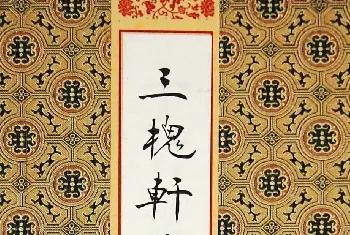 三槐軒